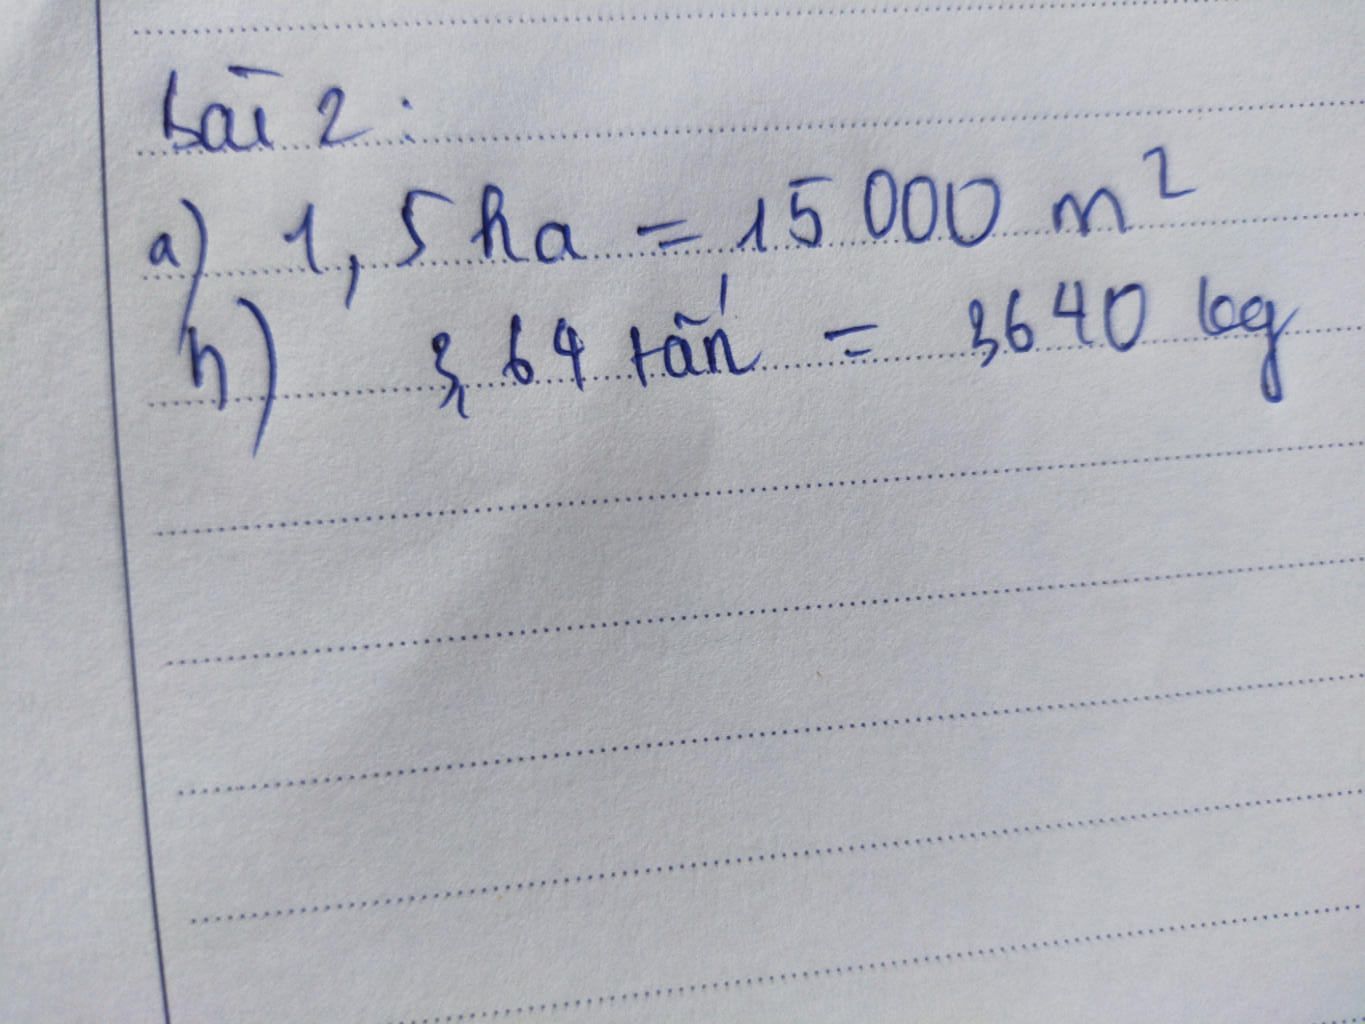 Bài 2:
a) 1,5 ha = 15 000 m²
b) 3,64 tấn = 3640 kg